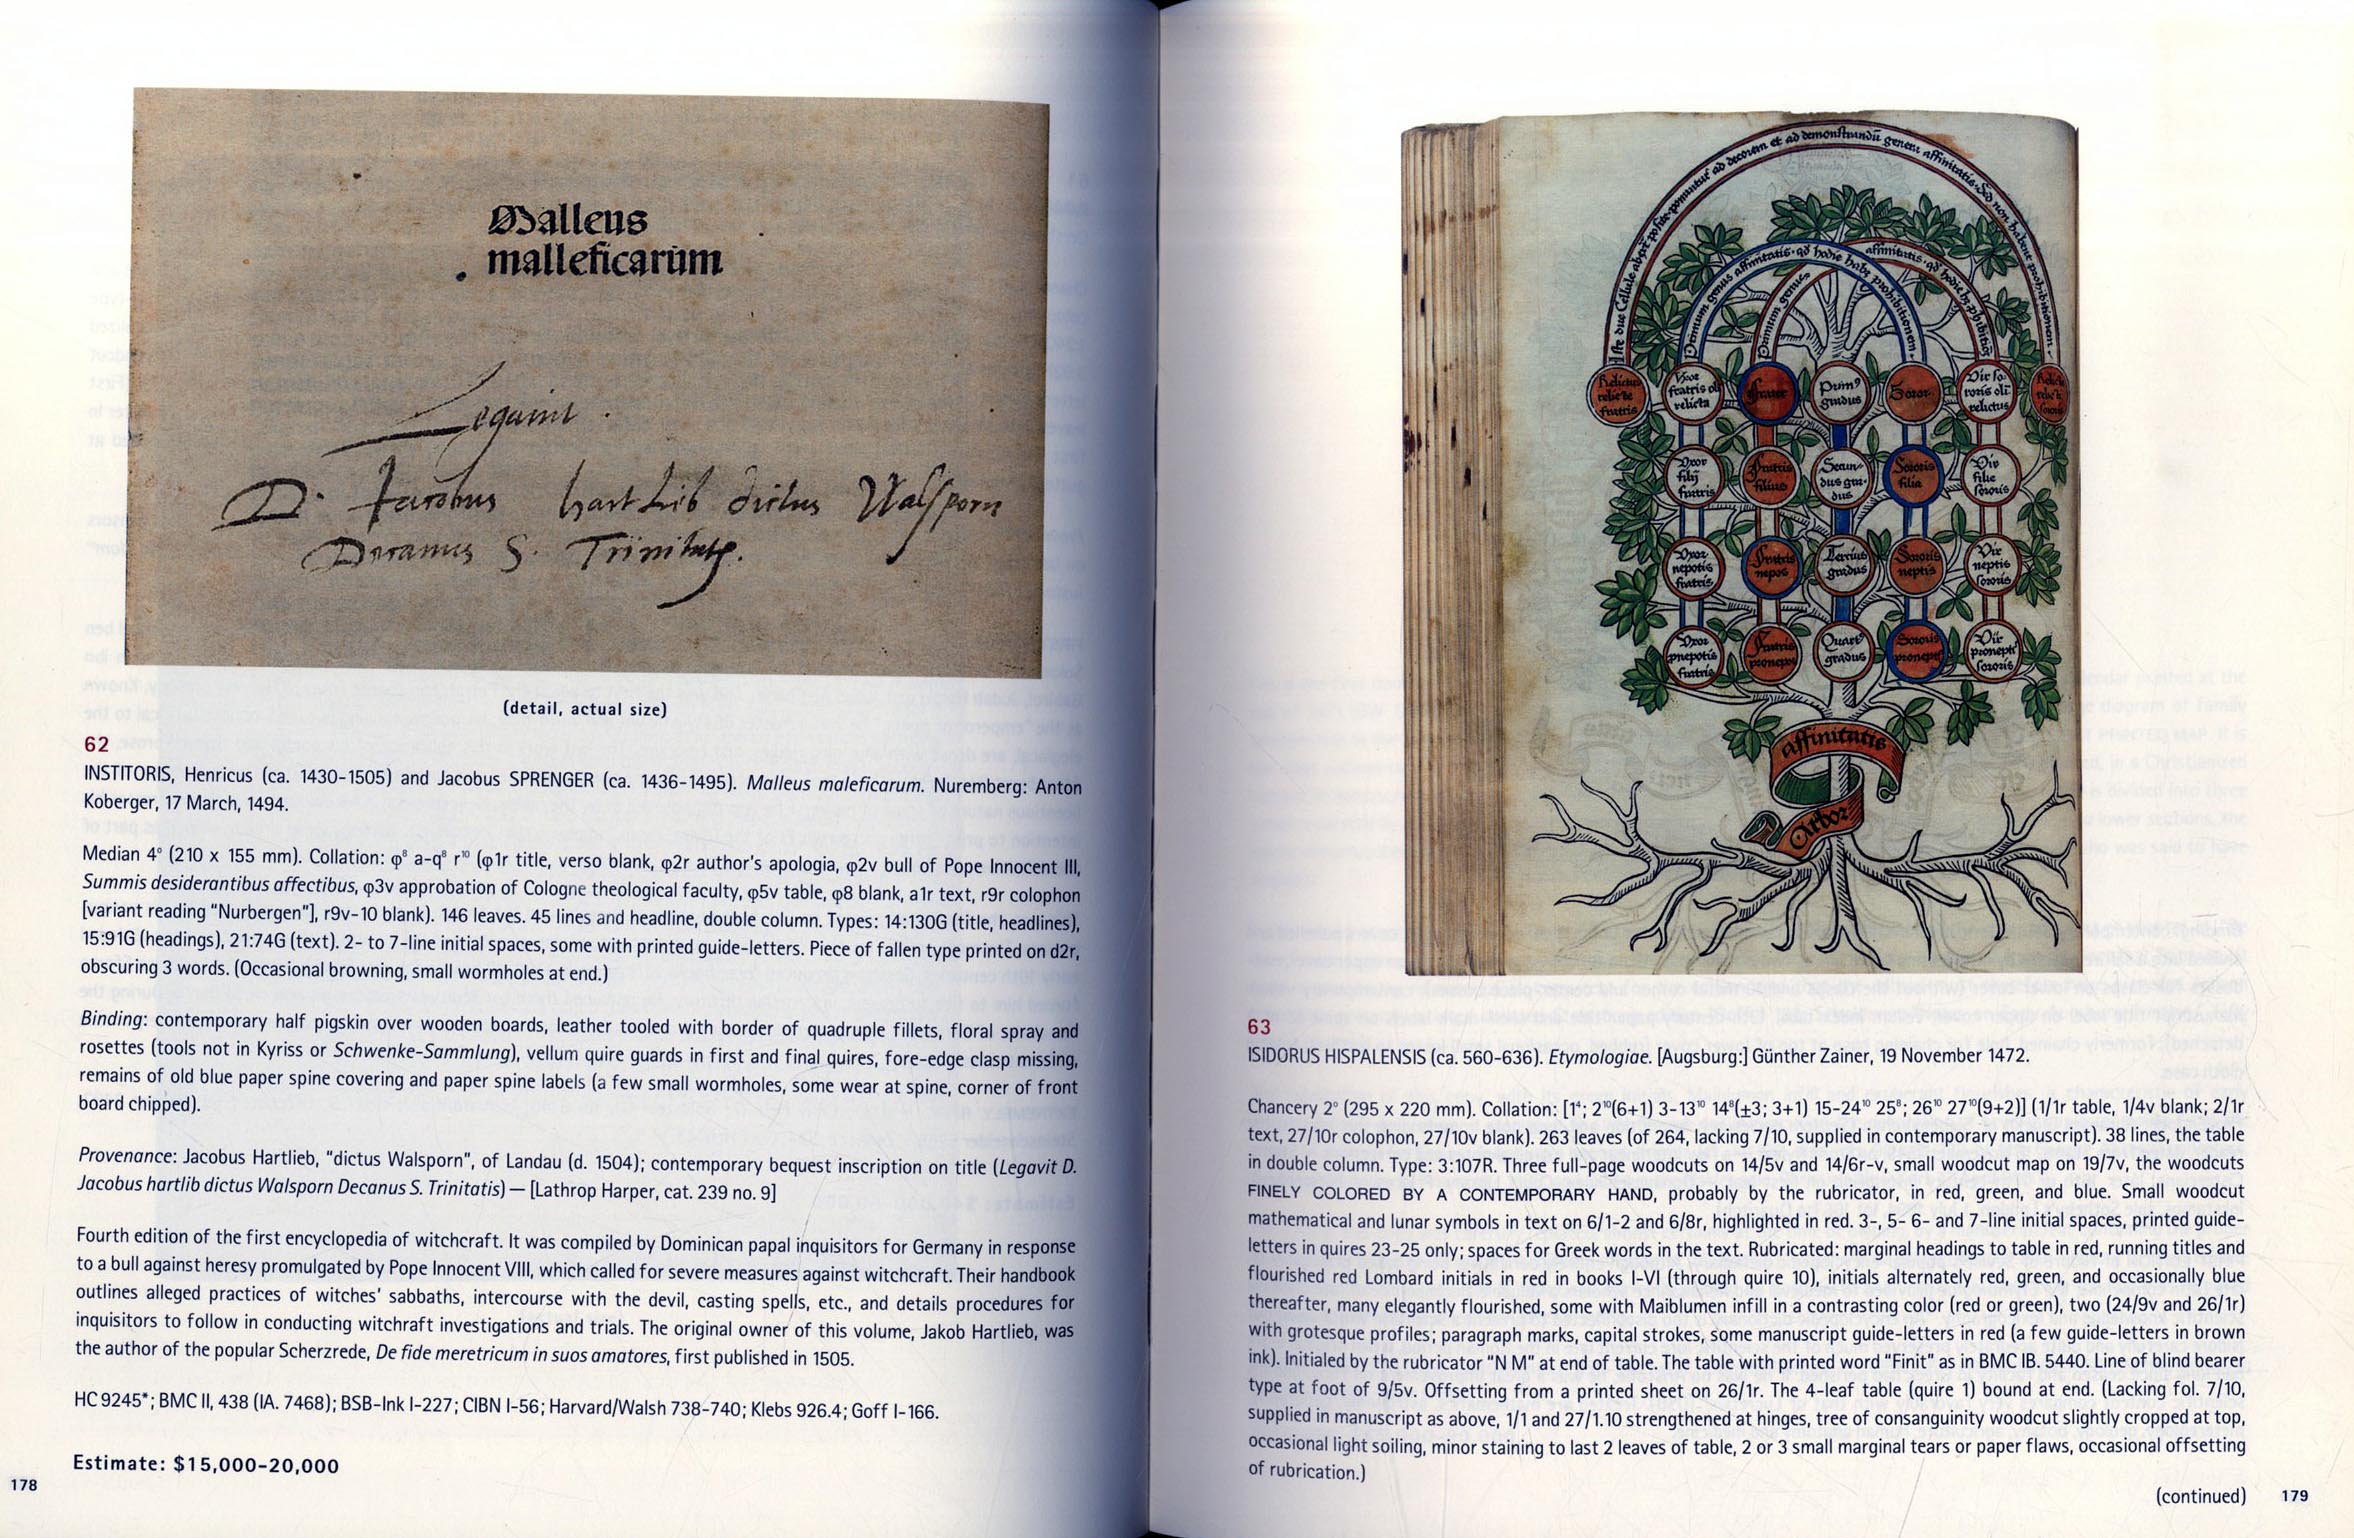 Malleus
malleficarum
Legavit .
D. Jacobus hartlib dictus Walsporn
Decanus S. Trinitatis.
(detail, actual size)
62
INSTITORIS, Henricus (ca. 1430-1505) and Jacobus SPRENGER (ca. 1436-1495). Malleus maleficarum. Nuremberg: Anton
Koberger, 17 March, 1494.
Median 4° (210 x 155 mm). Collation: φ⁸ a-q⁸ r¹⁰ (φ1r title, verso blank, φ2r author's apologia, φ2v bull of Pope Innocent III,
Summis desiderantibus affectibus, φ3v approbation of Cologne theological faculty, φ5v table, φ8 blank, a1r text, r9r colophon
[variant reading "Nurbergen"], r9v-10 blank). 146 leaves. 45 lines and headline, double column. Types: 14:130G (title, headlines),
15:91G (headings), 21:74G (text). 2- to 7-line initial spaces, some with printed guide-letters. Piece of fallen type printed on d2r,
obscuring 3 words. (Occasional browning, small wormholes at end.)
Binding: contemporary half pigskin over wooden boards, leather tooled with border of quadruple fillets, floral spray and
rosettes (tools not in Kyriss or Schwenke-Sammlung), vellum quire guards in first and final quires, fore-edge clasp missing,
remains of old blue paper spine covering and paper spine labels (a few small wormholes, some wear at spine, corner of front
board chipped).
Provenance: Jacobus Hartlieb, "dictus Walsporn", of Landau (d. 1504); contemporary bequest inscription on title (Legavit D.
Jacobus hartlib dictus Walsporn Decanus S. Trinitatis) — [Lathrop Harper, cat. 239 no. 9]
Fourth edition of the first encyclopedia of witchcraft. It was compiled by Dominican papal inquisitors for Germany in response
to a bull against heresy promulgated by Pope Innocent VIII, which called for severe measures against witchcraft. Their handbook
outlines alleged practices of witches' sabbaths, intercourse with the devil, casting spells, etc., and details procedures for
inquisitors to follow in conducting witchraft investigations and trials. The original owner of this volume, Jakob Hartlieb, was
the author of the popular Scherzrede, De fide meretricum in suos amatores, first published in 1505.
HC 9245*; BMC II, 438 (IA. 7468); BSB-Ink I-227; CIBN I-56; Harvard/Walsh 738-740; Klebs 926.4; Goff I-166.
Estimate: $15,000-20,000
178
Relictus
relicte
fratris
Uxor
fratris oli
relicta
Frater
Primus
gradus
Soror
Vir so-
roris oli
relictus
Uxor
filii
fratris
Fratris
filius
Secun-
dus gra-
dus
Sororis
filia
Vir
filie
sororis
Uxor
nepotis
fratris
Fratris
nepos
Tercius
gradus
Sororis
neptis
Vir
neptis
sororis
Uxor
pnepotis
fratris
Fratris
pronepos
Quartus
gradus
Sororis
proneptis
Vir
proneptis
sororis
affinitatis
Arbor
63
ISIDORUS HISPALENSIS (ca. 560-636). Etymologiae. [Augsburg:] Günther Zainer, 19 November 1472.
Chancery 2° (295 x 220 mm). Collation: [1⁴; 2¹⁰(6+1) 3-13¹⁰ 14⁸(±3; 3+1) 15-24¹⁰ 25⁸; 26¹⁰ 27¹⁰(9+2)] (1/1r table, 1/4v blank; 2/1r
text, 27/10r colophon, 27/10v blank). 263 leaves (of 264, lacking 7/10, supplied in contemporary manuscript). 38 lines, the table
in double column. Type: 3:107R. Three full-page woodcuts on 14/5v and 14/6r-v, small woodcut map on 19/7v, the woodcuts
FINELY COLORED BY A CONTEMPORARY HAND, probably by the rubricator, in red, green, and blue. Small woodcut
mathematical and lunar symbols in text on 6/1-2 and 6/8r, highlighted in red. 3-, 5- 6- and 7-line initial spaces, printed guide-
letters in quires 23-25 only; spaces for Greek words in the text. Rubricated: marginal headings to table in red, running titles and
flourished red Lombard initials in red in books I-VI (through quire 10), initials alternately red, green, and occasionally blue
thereafter, many elegantly flourished, some with Maiblumen infill in a contrasting color (red or green), two (24/9v and 26/1r)
with grotesque profiles; paragraph marks, capital strokes, some manuscript guide-letters in red (a few guide-letters in brown
ink). Initialed by the rubricator "N M" at end of table. The table with printed word "Finit" as in BMC IB. 5440. Line of blind bearer
type at foot of 9/5v. Offsetting from a printed sheet on 26/1r. The 4-leaf table (quire 1) bound at end. (Lacking fol. 7/10,
supplied in manuscript as above, 1/1 and 27/1.10 strengthened at hinges, tree of consanguinity woodcut slightly cropped at top,
occasional light soiling, minor staining to last 2 leaves of table, 2 or 3 small marginal tears or paper flaws, occasional offsetting
of rubrication.)
(continued)
179